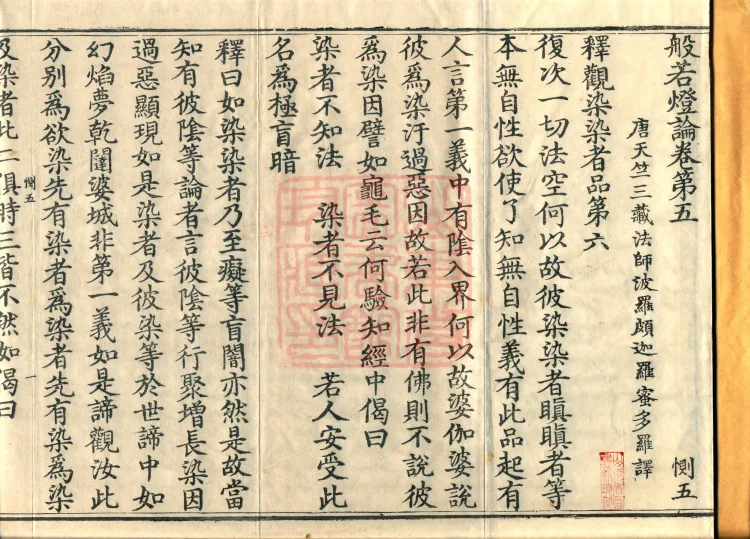 般若燈論卷第五 惻五
唐天竺三藏法師波羅頗迦羅蜜多羅譯
釋觀染染者品第六
復次一切法空何以故彼染染者瞋瞋者等
本無自性欲使了知無自性義有此品起有
人言第一義中有陰入界何以故婆伽婆說
彼為染汙過惡因故若此非有佛則不說彼
為染因譬如龜毛云何驗知經中偈曰
染者不知法 染者不見法 若人安受此
名為極盲暗
釋曰如染染者乃至癡等盲闇亦然是故當
知有彼陰等論者言彼陰等行聚增長染因
過惡顯現如是染者及彼染等於世諦中如
幻焰夢乾闥婆城非第一義如是諦觀汝此
分別為欲染先有染者為染者先有染為染
惻五 一
及染者此二俱時三皆不然如偈曰